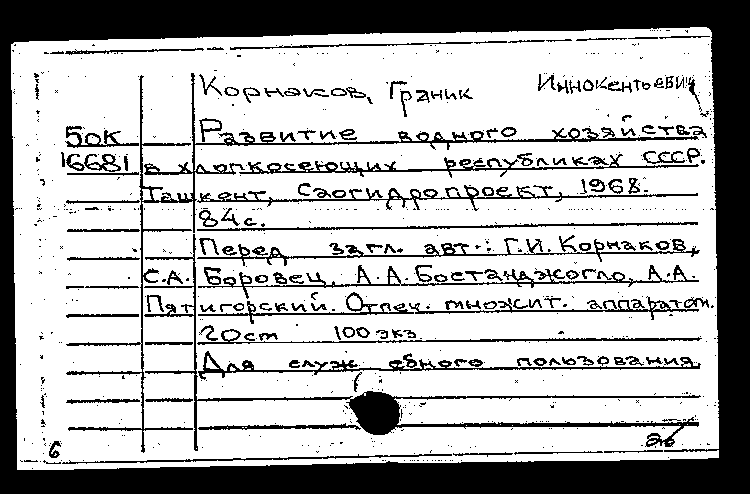 Корнаков, Граник Иннокентьевич
Бок Развитие водного хозяйства
16681 в хлопкосеющих республиках СССР.
Ташкент, Саогидропроект, 1968.
84 с.
Перед загл. авт.: Г.И. Корнаков,
С.А. Боровец, А.А. Бостанджогло, А.А.
Пятигорский. Отпеч. множит. аппаратом.
20 см 100 экз
Для служебного пользования
6